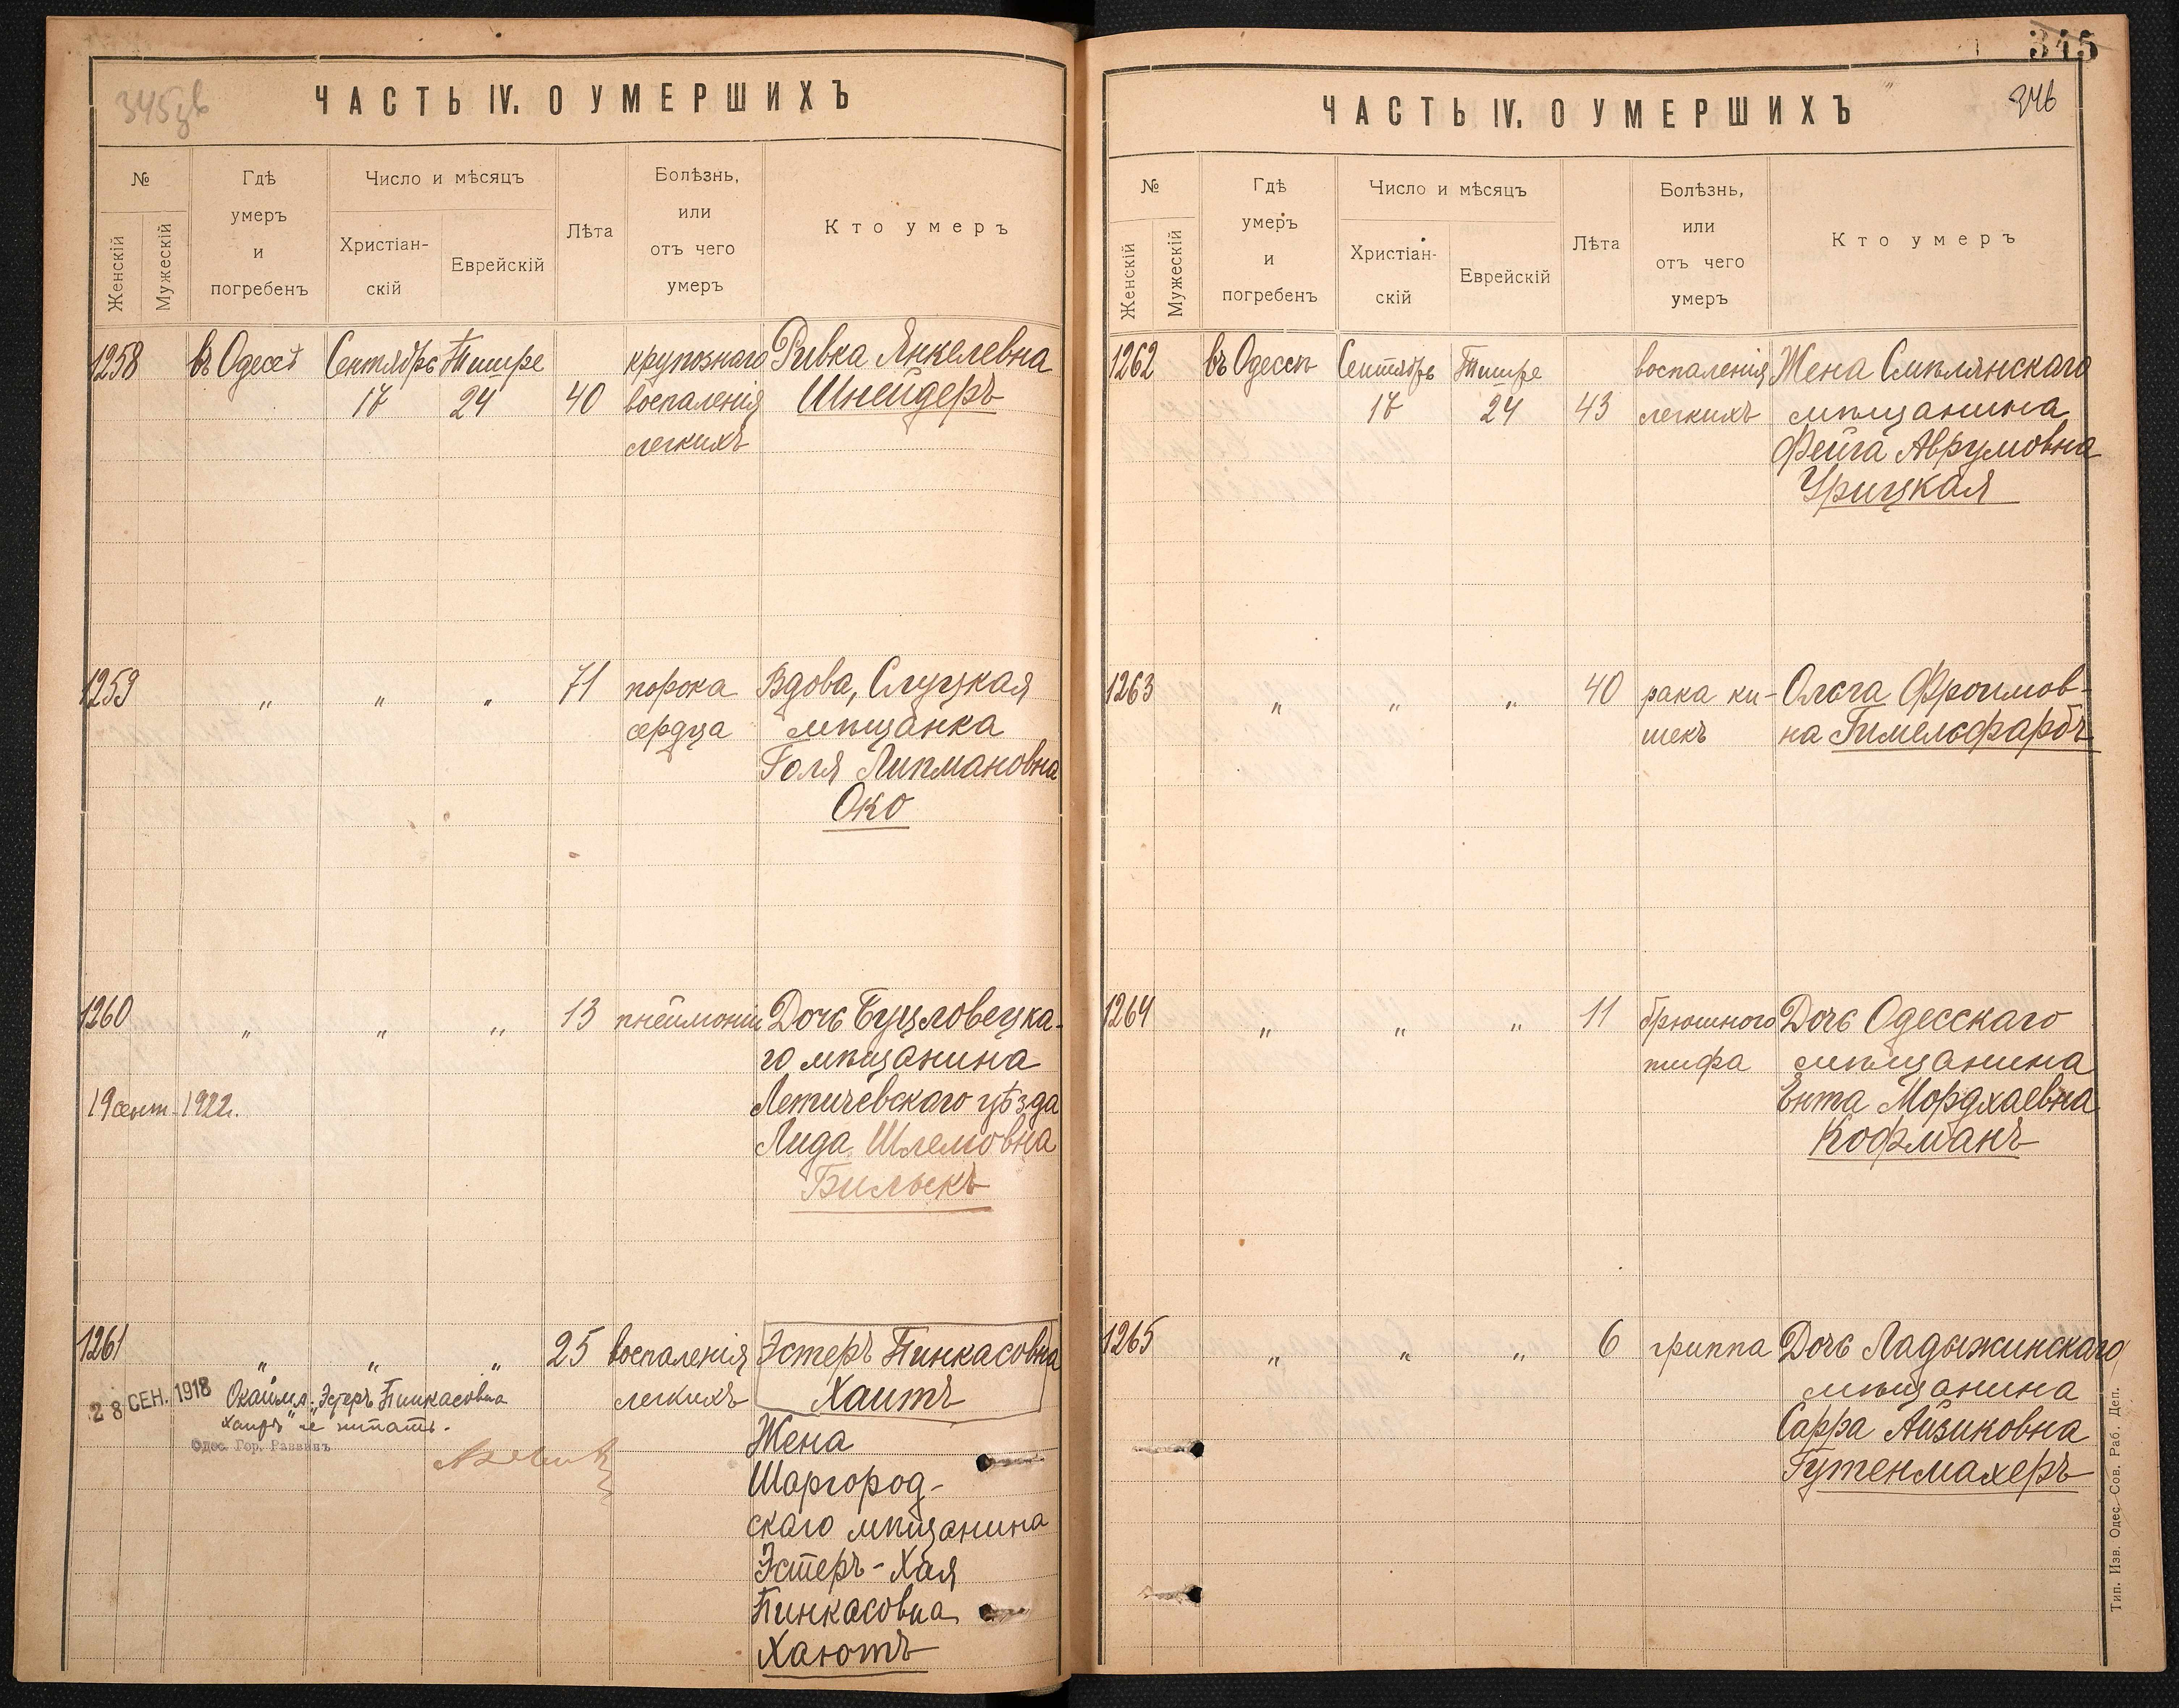 345 зв
ЧАСТЬ IV. О УМЕРШИХЪ
№
Женскій
Мужескій
Гдѣ
умеръ
и
погребенъ
Число и мѣсяцъ
Христіан-
скій
Еврейскій
Лѣта
Болѣзнь,
или
отъ чего
умеръ
Кто умеръ
1258 въ Одессѣ Сентябрь Тишре крупознаго Ривка Янкелевна
17 24 40 воспаленія Шнейдеръ
легкихъ
1259 " " " 71 порока Вдова, Слуцкая
сердца мѣщанка
Голя Липмановна
Око
1260 " " " 13 пнеймоніи Дочь Буцловецка-
го мѣщанина
19 сент. 1922. Летичевскаго уѣзда
Лида Шлемовна
Бильскъ
1261 " " " 25 воспаленія Эстеръ Пинкасовна
легкихъ Хаитъ
28 СЕН. 1918 Окайма: Эстеръ Пинкасовна
Хаитъ" не читать.
Одес. Гор. Раввинъ
Жена
Шаргород-
скаго мѣщанина
Эстеръ-Хая
Пинкасовна
Хаютъ
345
346
ЧАСТЬ IV. О УМЕРШИХЪ
№
Женскій
Мужескій
Гдѣ
умеръ
и
погребенъ
Число и мѣсяцъ
Христіан-
скій
Еврейскій
Лѣта
Болѣзнь,
или
отъ чего
умеръ
Кто умеръ
1262 въ Одессѣ Сентябрь Тишре воспаленія Жена Смѣлянскаго
17 24 43 легкихъ мѣщанина
Фейга Аврумовна
Урицкая
1263 " " " 40 рака ки- Ольга Фроимов-
шекъ на Гимельфарбъ
1264 " " " 11 брюшного Дочь Одесскаго
тифа мѣщанина
Ента Мордхаевна
Кофманъ
1265 " " " 6 гриппа Дочь Ладыжинскаго
мѣщанина
Сарра Айзиковна
Гутенмахеръ
Тип. Изв. Одес. Сов. Раб. Деп.